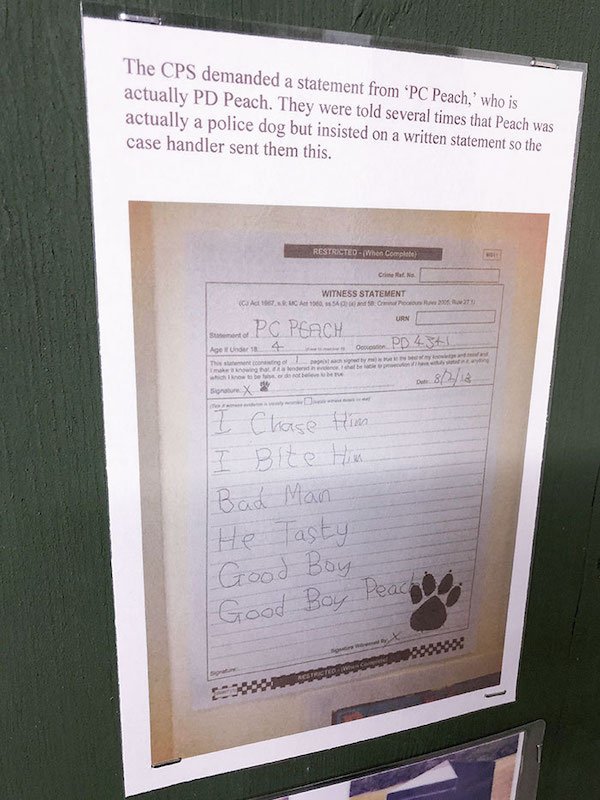 The CPS demanded a statement from ‘PC Peach,’ who is
actually PD Peach. They were told several times that Peach was
actually a police dog but insisted on a written statement so the
case handler sent them this.
RESTRICTED - (When Complete)
MG11
Crime Ref. No.
WITNESS STATEMENT
(CJ Act 1967, s.9; MC Act 1980, ss.5A(3) (a) and 5B; Criminal Procedure Rules 2005, Rule 27.1)
URN
Statement of PC PEACH
Age if under 18 4 Occupation PD 4341
This statement (consisting of 1 page(s) each signed by me) is true to the best of my knowledge and belief and
I make it knowing that, if it is tendered in evidence, I shall be liable to prosecution if I have wilfully stated in it, anything
which I know to be false, or do not believe to be true.
Signature: X Date: 8/2/18
I Chase Him
I Bite Him
Bad Man
He Tasty
Good Boy
Good Boy Peach
Signature: Signature Witnessed By X
RESTRICTED - (When Complete)